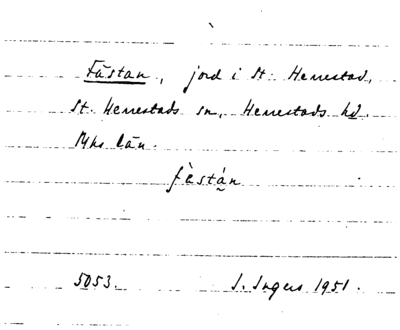 Fästan, jord i St. Herrestad,
St. Herrestads sn, Herrestads hd.
Mhs län.
fèstán
5053. I. Ingers 1951.